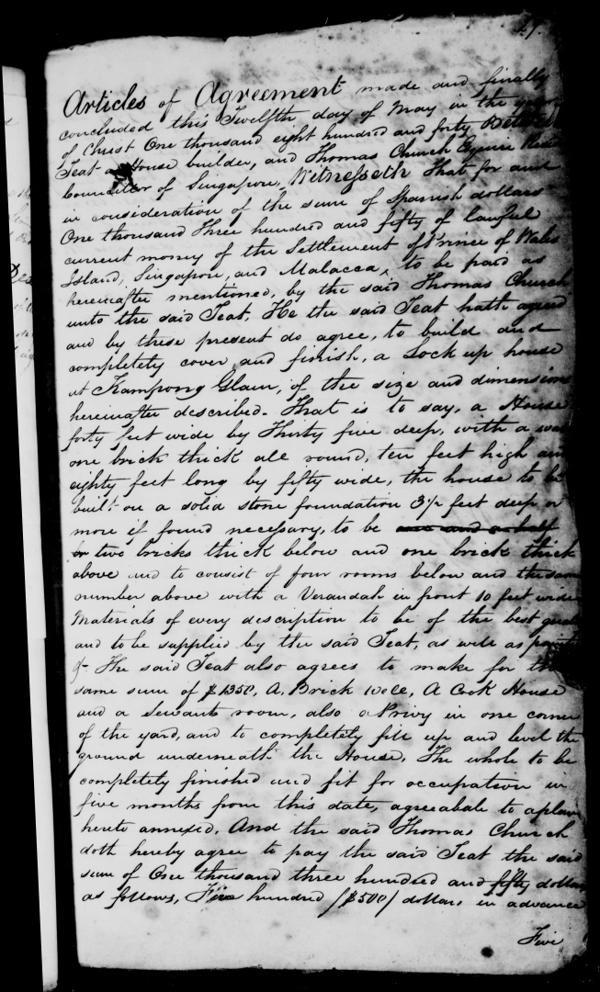 27.
Articles of Agreement made and finally
concluded this Twelfth day of May in the year
of Christ One thousand eight hundred and forty Between
Teat a House builder, and Thomas Church Esquire
Councillor of Singapore, Witnesseth That for and
in consideration of the sum of Spanish dollars
One thousand Three hundred and fifty of lawful
current money of the Settlement of Prince of Wales
Island, Singapore, and Malacca, to be paid as
hereinafter mentioned, by the said Thomas Church
unto the said Teat, He the said Teat hath agreed
and by these present do agree, to build and
completely cover and finish, a Lock up house
at Kampong Glam, of the size and dimension
hereinafter described. That is to say, a House
forty feet wide by Thirty five deep, with a wall
one brick thick all round, ten feet high and
eighty feet long by fifty wide, the house to be
built on a solid stone foundation 3½ feet deep or
more if found necessary, to be one and a half
or two bricks thick below and one brick thick
above and to consist of four rooms below and the same
number above with a Verandah in front 10 feet wide
Materials of every description to be of the best
and to be supplied by the said Teat, as well as
& He said Teat also agrees to make for the
same sum of $1350, A. Brick well, A Cook House
and a Servants room, also a Privy in one corner
of the yard, and to completely fill up and level the
ground underneath the House. The whole to be
completely finished and fit for occupation in
five months from this date, agreeable to a plan
hereto annexed. And the said Thomas Church
doth hereby agree to pay the said Teat the said
sum of One thousand three hundred and fifty dollars
as follows, Five hundred /$500/ dollars in advance
Five